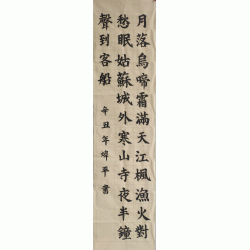 月落烏啼霜滿天江楓漁火對
愁眠姑蘇城外寒山寺夜半鐘
聲到客船
辛丑年煒平書